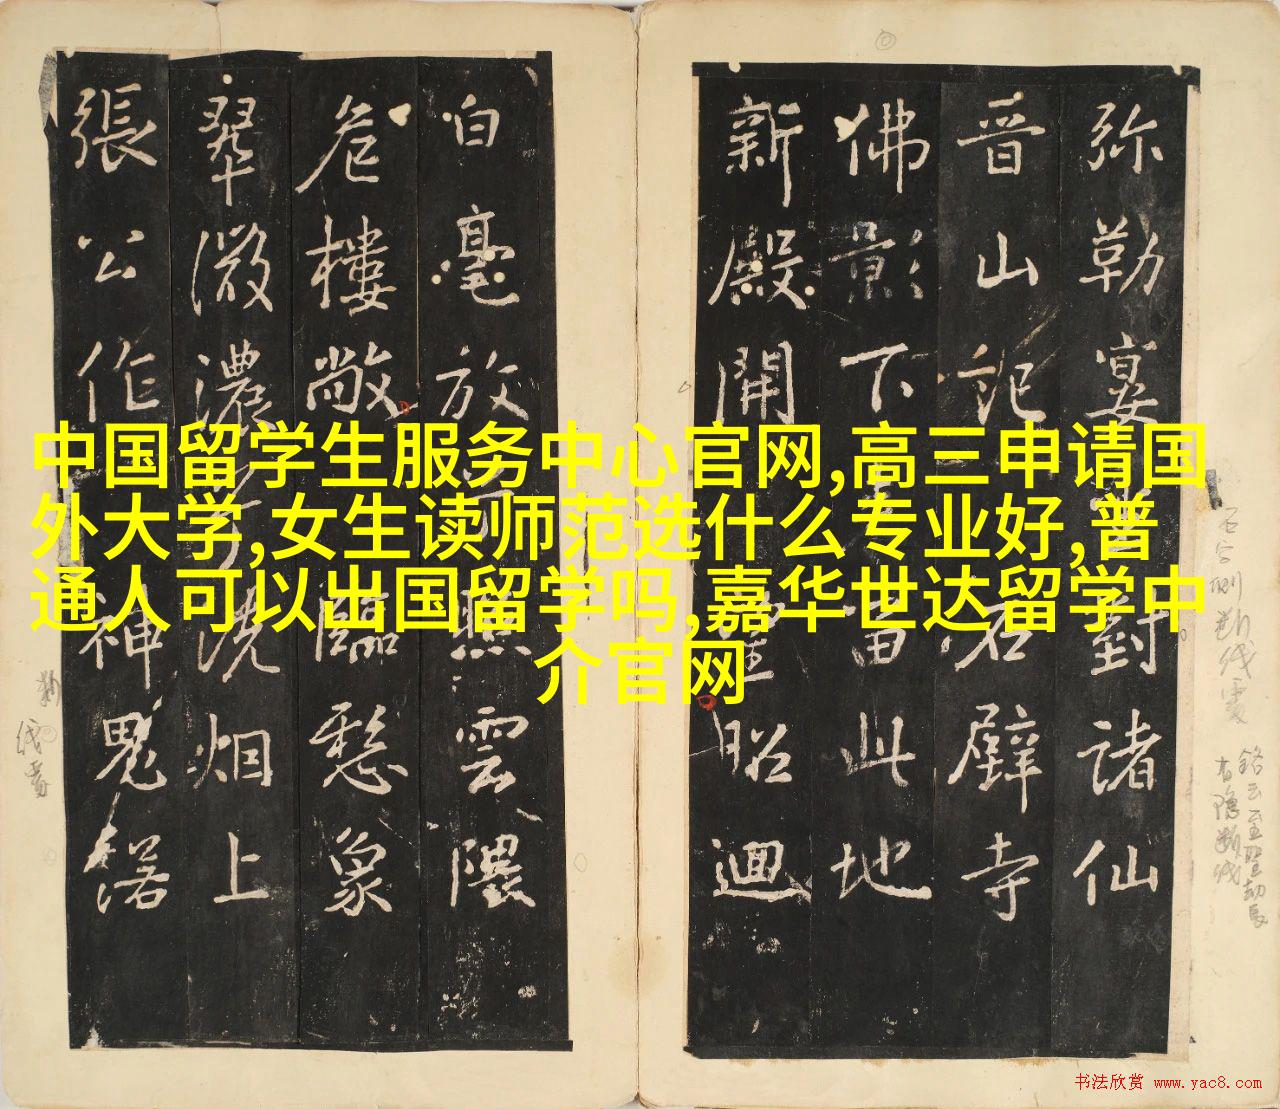 中国留学生服务中心官网,高三申请国
外大学,女生读师范选什么专业好,普
通人可以出国留学吗,嘉华世达留学中
介官网
弥勒宴對諸仙
晋山記石壁寺
佛影下留此地
新殿開聖昭迴
白毫放照雲隈
危樓敞臨愁象
翠微濃烟上
張公作神鬼
书法欣赏 www.yac8.com